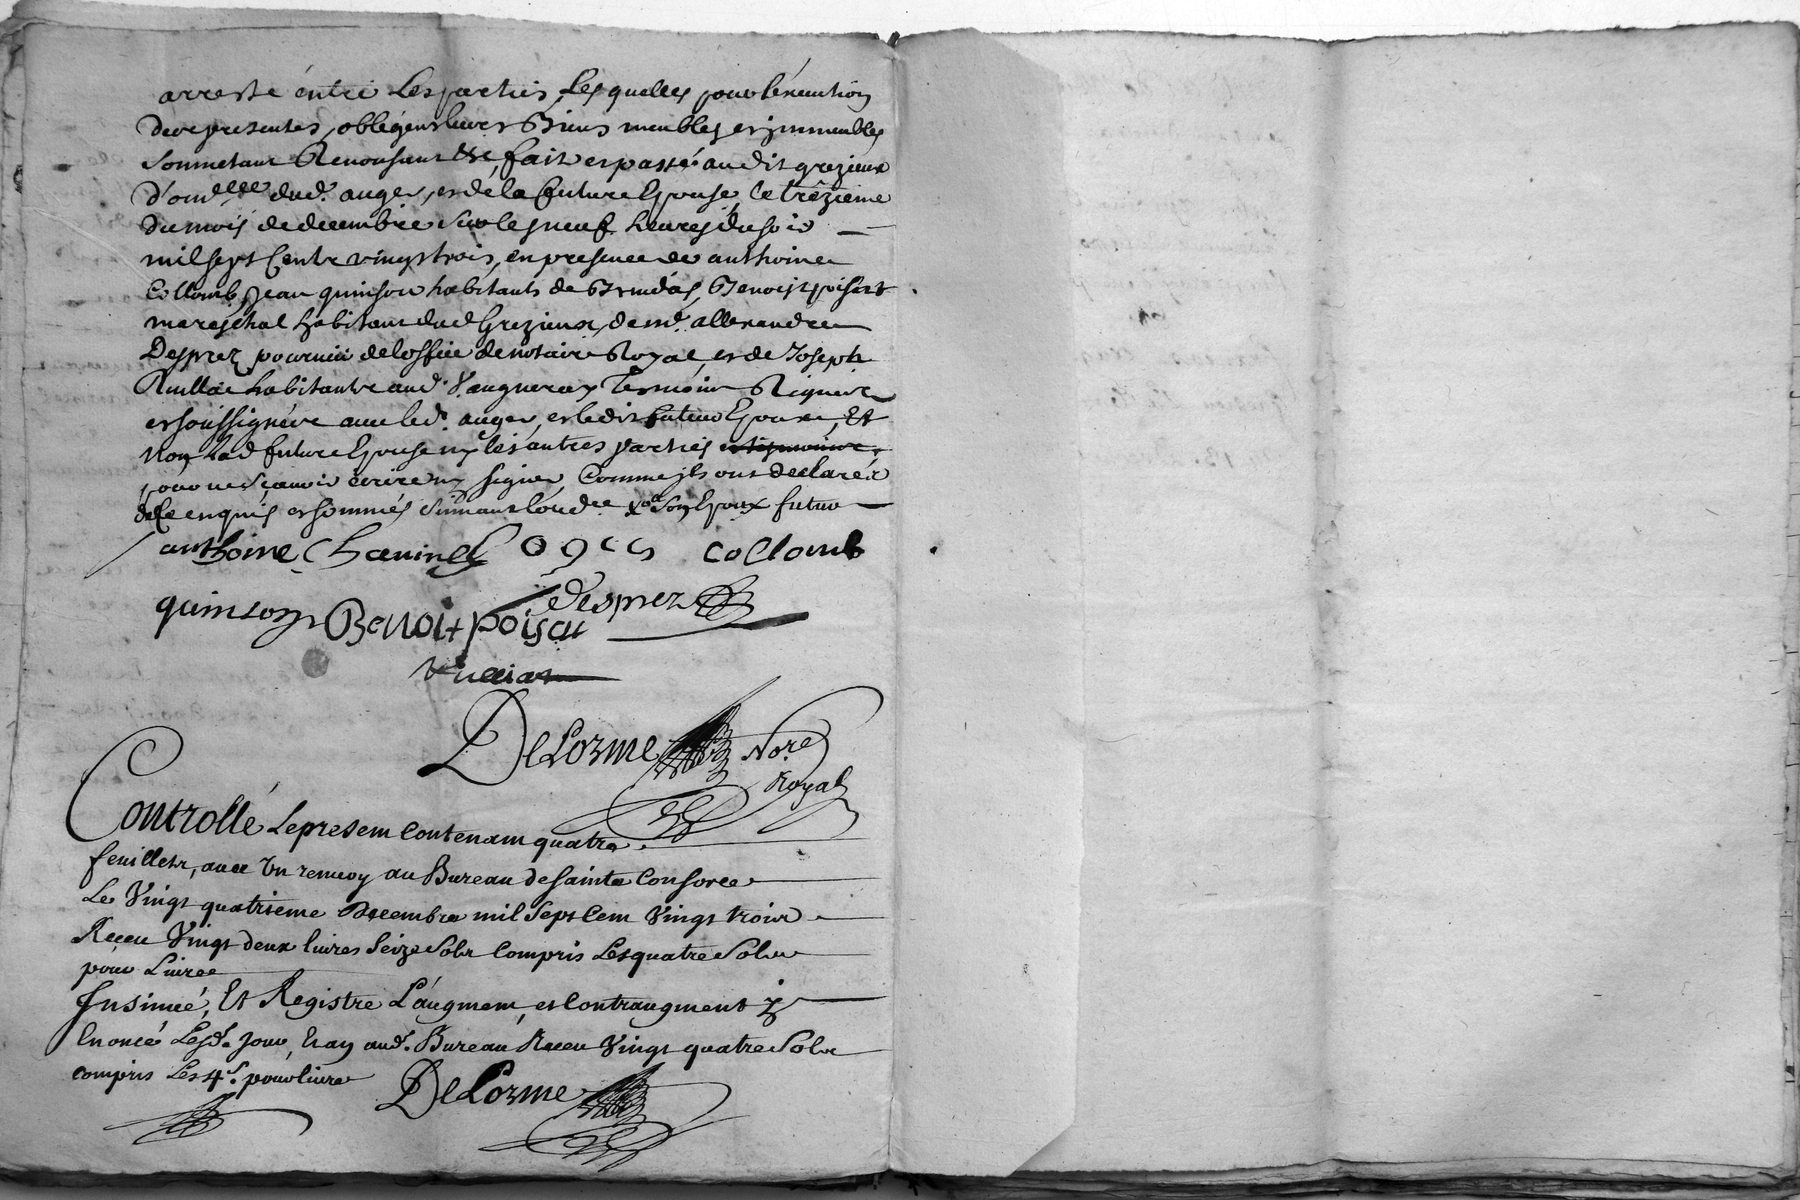 arresté entre Les parties, Lesquelles pour lexecution
desd presentes, obligent leurs Biens meubles et immeubles
soumetant Renonsant &c, fait et passé audit grezieux
dud. auger, et de la future Epouse, Ce trêzieme
du mois de decembre sur les neuf heures du soir
mil sept Cent vingt trois, en presence de anthoine
Collomb, Jean quinson habitants de Brindas, Benoist poisat
mareschal habitant dud Grezieux, de me. allexandre
Desprez pourveu de loffice de notaire Royal, et de Joseph
habitants aud. Vaugneray Tesmoins Requis
et soussignés avec led. auger, et ledit futur Epoux, Et
non Lad future Epouse ny les autres parties
pour ne sçavoir écrire ny signer Comme ils ont declaré
de ce enquis et sommés suivant lord.ce son Epoux futur
anthoine collomb
quinson Benoit poisat desprez
DeLorme Nore
Royal
Controllé Le present Contenant quatre
feuillets, avec Un renvoy au Bureau de sainte Consorce
Le Vingt quatrieme Decembre mil Sept Cent Vingt trois
Receu Vingt deux livres Seize Sols Compris Les quatre Sols
pour Livre
Insinué, Et Registré L'augment, et Contraugment y
Enoncé Lesd. Jour, Et an aud. Bureau Receu Vingt quatre Sols
compris Les 4s. pour livre DeLorme